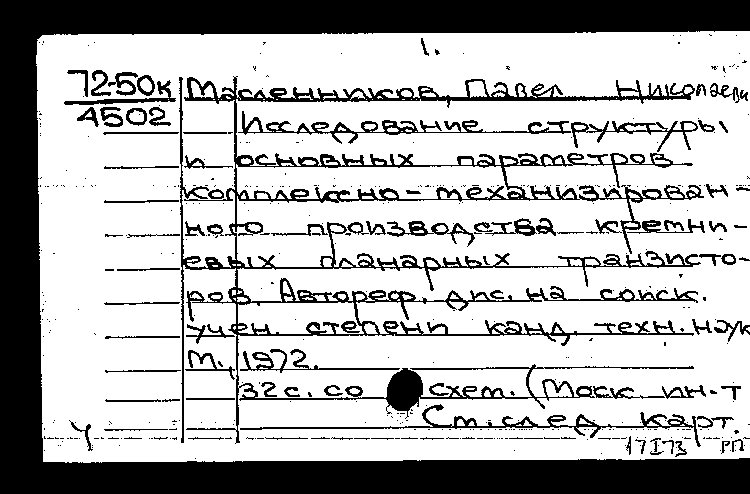 1.
72-50к Масленников, Павел Николаеви
4502 Исследование структуры
и основных параметров
комплексно-механизирован-
ного производства кремни-
евых планарных транзисто-
ров. Автореф. дис. на соиск.
учен. степени канд. техн. наук
М., 1972.
32 с. со схем. (Моск. ин-т
См. след. карт.
17 I 73 РП